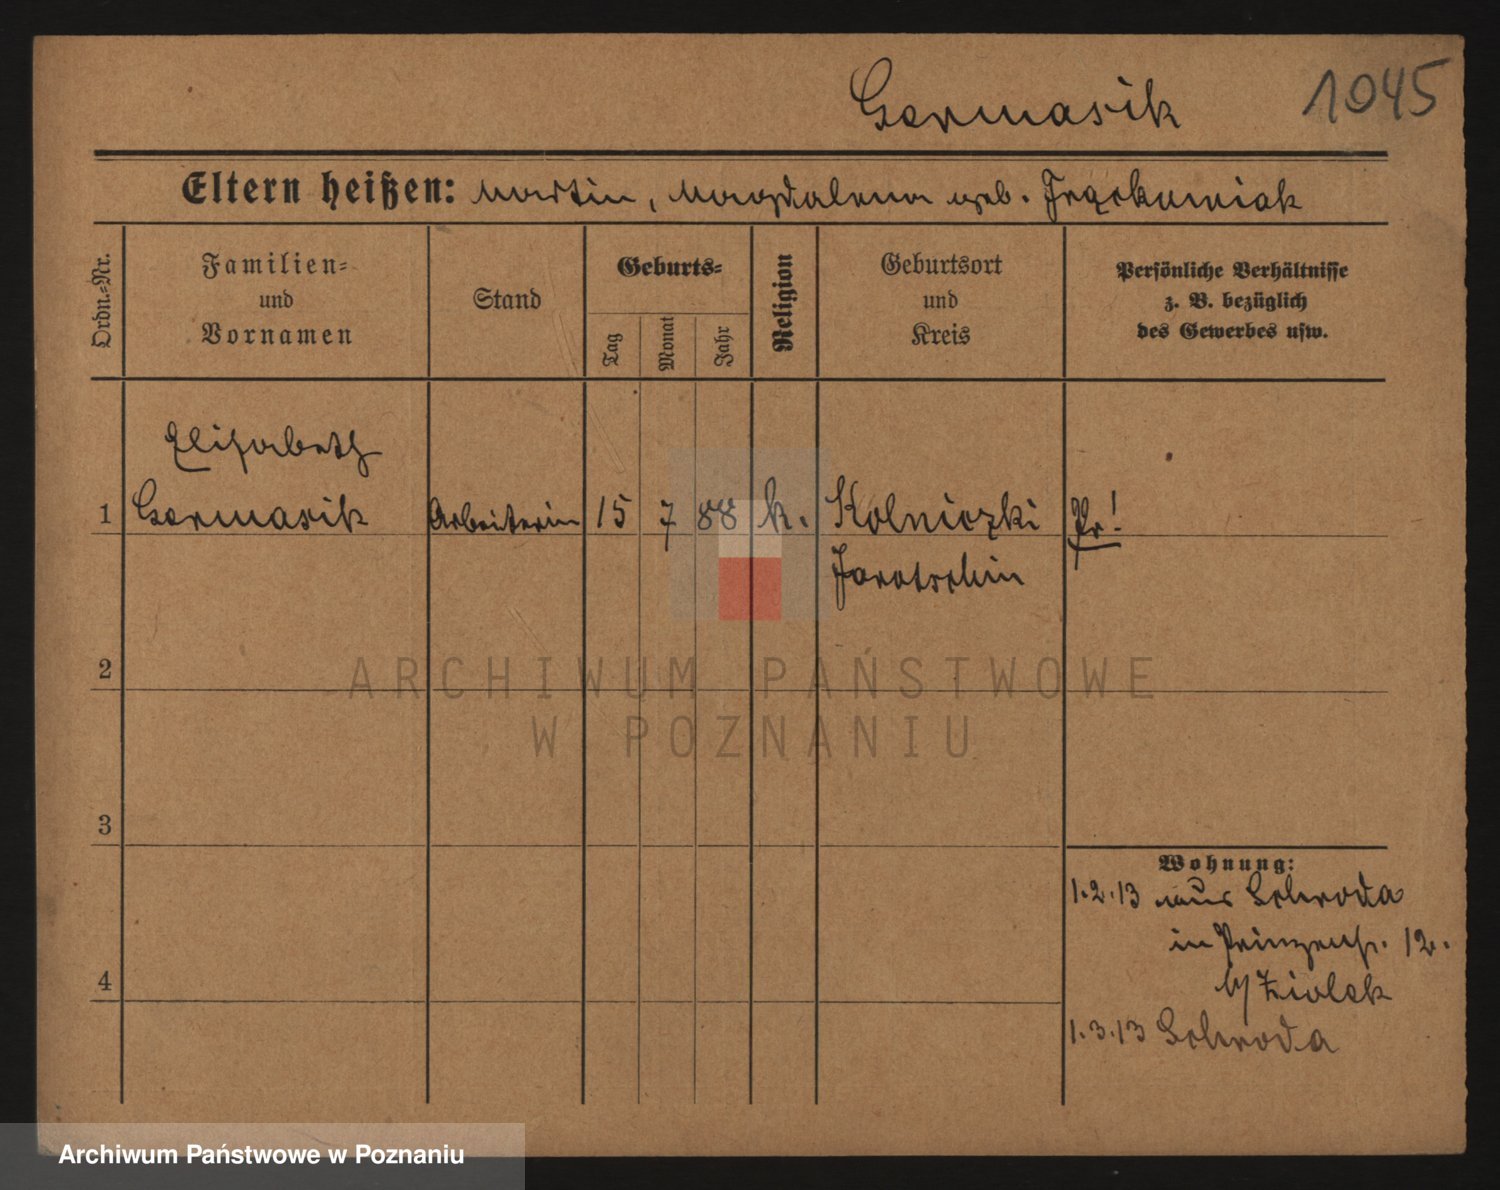 Germasik 1045
Eltern heißen: Martin, Magdalena geb. Frąckowiak
Ordn.-Nr.
Familien-
und
Vornamen
Stand
Geburts-
Tag
Monat
Jahr
Religion
Geburtsort
und
Kreis
Persönliche Verhältnisse
z. B. bezüglich
des Gewerbes usw.
Elisabeth
1 Germasik Arbeiterin 15 7 88 k. Kolniczki Pr!
Jarotschin
2
3
4
Wohnung:
1.2.13 aus Schroda
in Prinzenstr. 12.
b/ Ziolek
1.3.13 Schroda
ARCHIWUM PAŃSTWOWE
W POZNANIU
Archiwum Państwowe w Poznaniu